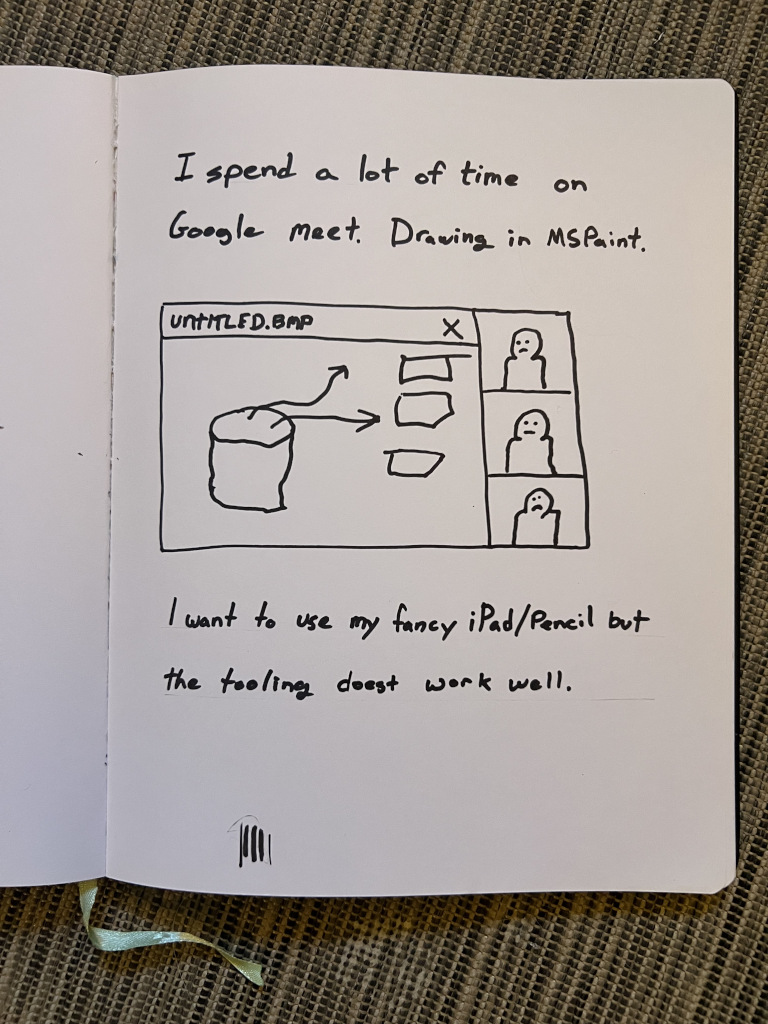 I spend a lot of time on
Google meet. Drawing in MSPaint.
UNTITLED.BMP X
I want to use my fancy iPad/Pencil but
the tooling doest work well.